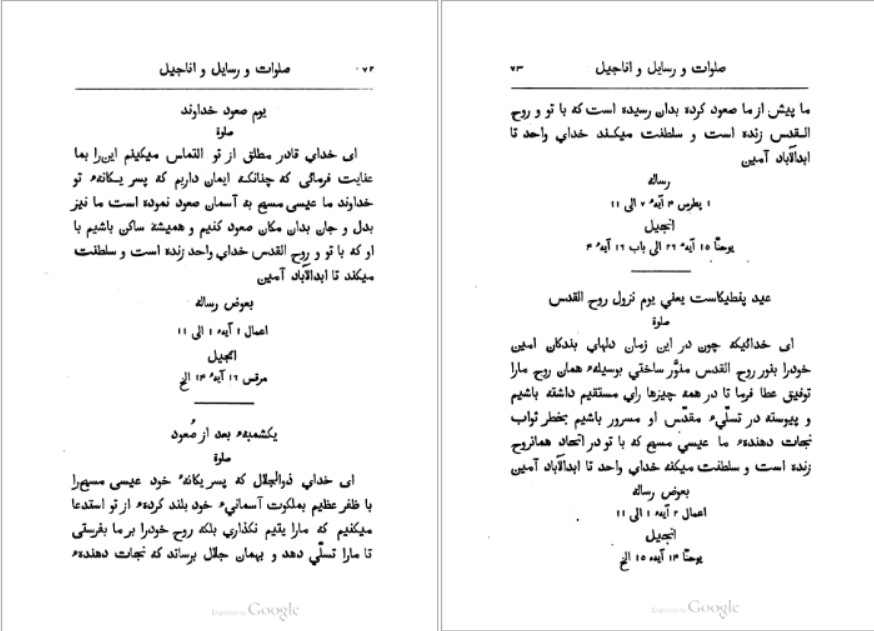 ۷۲ صلوات و رسایل و اناجیل
یوم صعود خداوند
صلوة
ای خدای قادر مطلق از تو التماس میکنیم این‌را بما
عنایت فرمائی که چنانکه ایمان داریم که پسر یکانهٔ تو
خداوند ما عیسی مسیح به آسمان صعود نموده است ما نیز
بدل و جان بدان مکان صعود کنیم و همیشه ساکن باشیم با
او که با تو و روح القدس خدای واحد زنده است و سلطنت
میکند تا ابدالآباد آمین
بعوض رساله
اعمال ۱ آیهٔ ۱ الی ۱۱
انجیل
مرقس ۱۶ آیهٔ ۱۴ الخ
یکشنبهٔ بعد از صُعود
صلوة
ای خدای ذوالجلال که پسر یکانهٔ خود عیسی مسیح‌را
با ظفر عظیم بملکوت آسمانیء خود بلند کردهٔ از تو استدعا
میکنیم که مارا یتیم نکذاری بلکه روح خودرا بر ما بفرستی
تا مارا تسلّی دهد و بهمان جلال برساند که نجات دهندهٔ
Digitized by Google
صلوات و رسایل و اناجیل ۷۳
ما پیش از ما صعود کرده بدان رسیده است که با تو و روح
القدس زنده است و سلطنت میکند خدای واحد تا
ابدالآباد آمین
رساله
۱ پطرس ۴ آیهٔ ۷ الی ۱۱
انجیل
یوحنّا ۱۵ آیهٔ ۲۶ الی باب ۱۶ آیهٔ ۴
عید پنطیکاست یعنی یوم نزول روح القدس
صلوة
ای خدائیکه چون در این زمان دلهای بندکان امین
خودرا بنور روح القدس منوَّر ساختی بوسیلهٔ همان روح مارا
توفیق عطا فرما تا در همه چیزها رای مستقیم داشته باشیم
و پیوسته در تسلّیء مقدّس او مسرور باشیم بخطر ثواب
نجات دهندهٔ ما عیسی مسیح که با تو در اتحاد همانروح
زنده است و سلطنت میکنه خدای واحد تا ابدالآباد آمین
بعوض رساله
اعمال ۲ آیهٔ ۱ الی ۱۱
انجیل
یوحنّا ۱۴ آیهٔ ۱۵ الخ
Digitized by Google